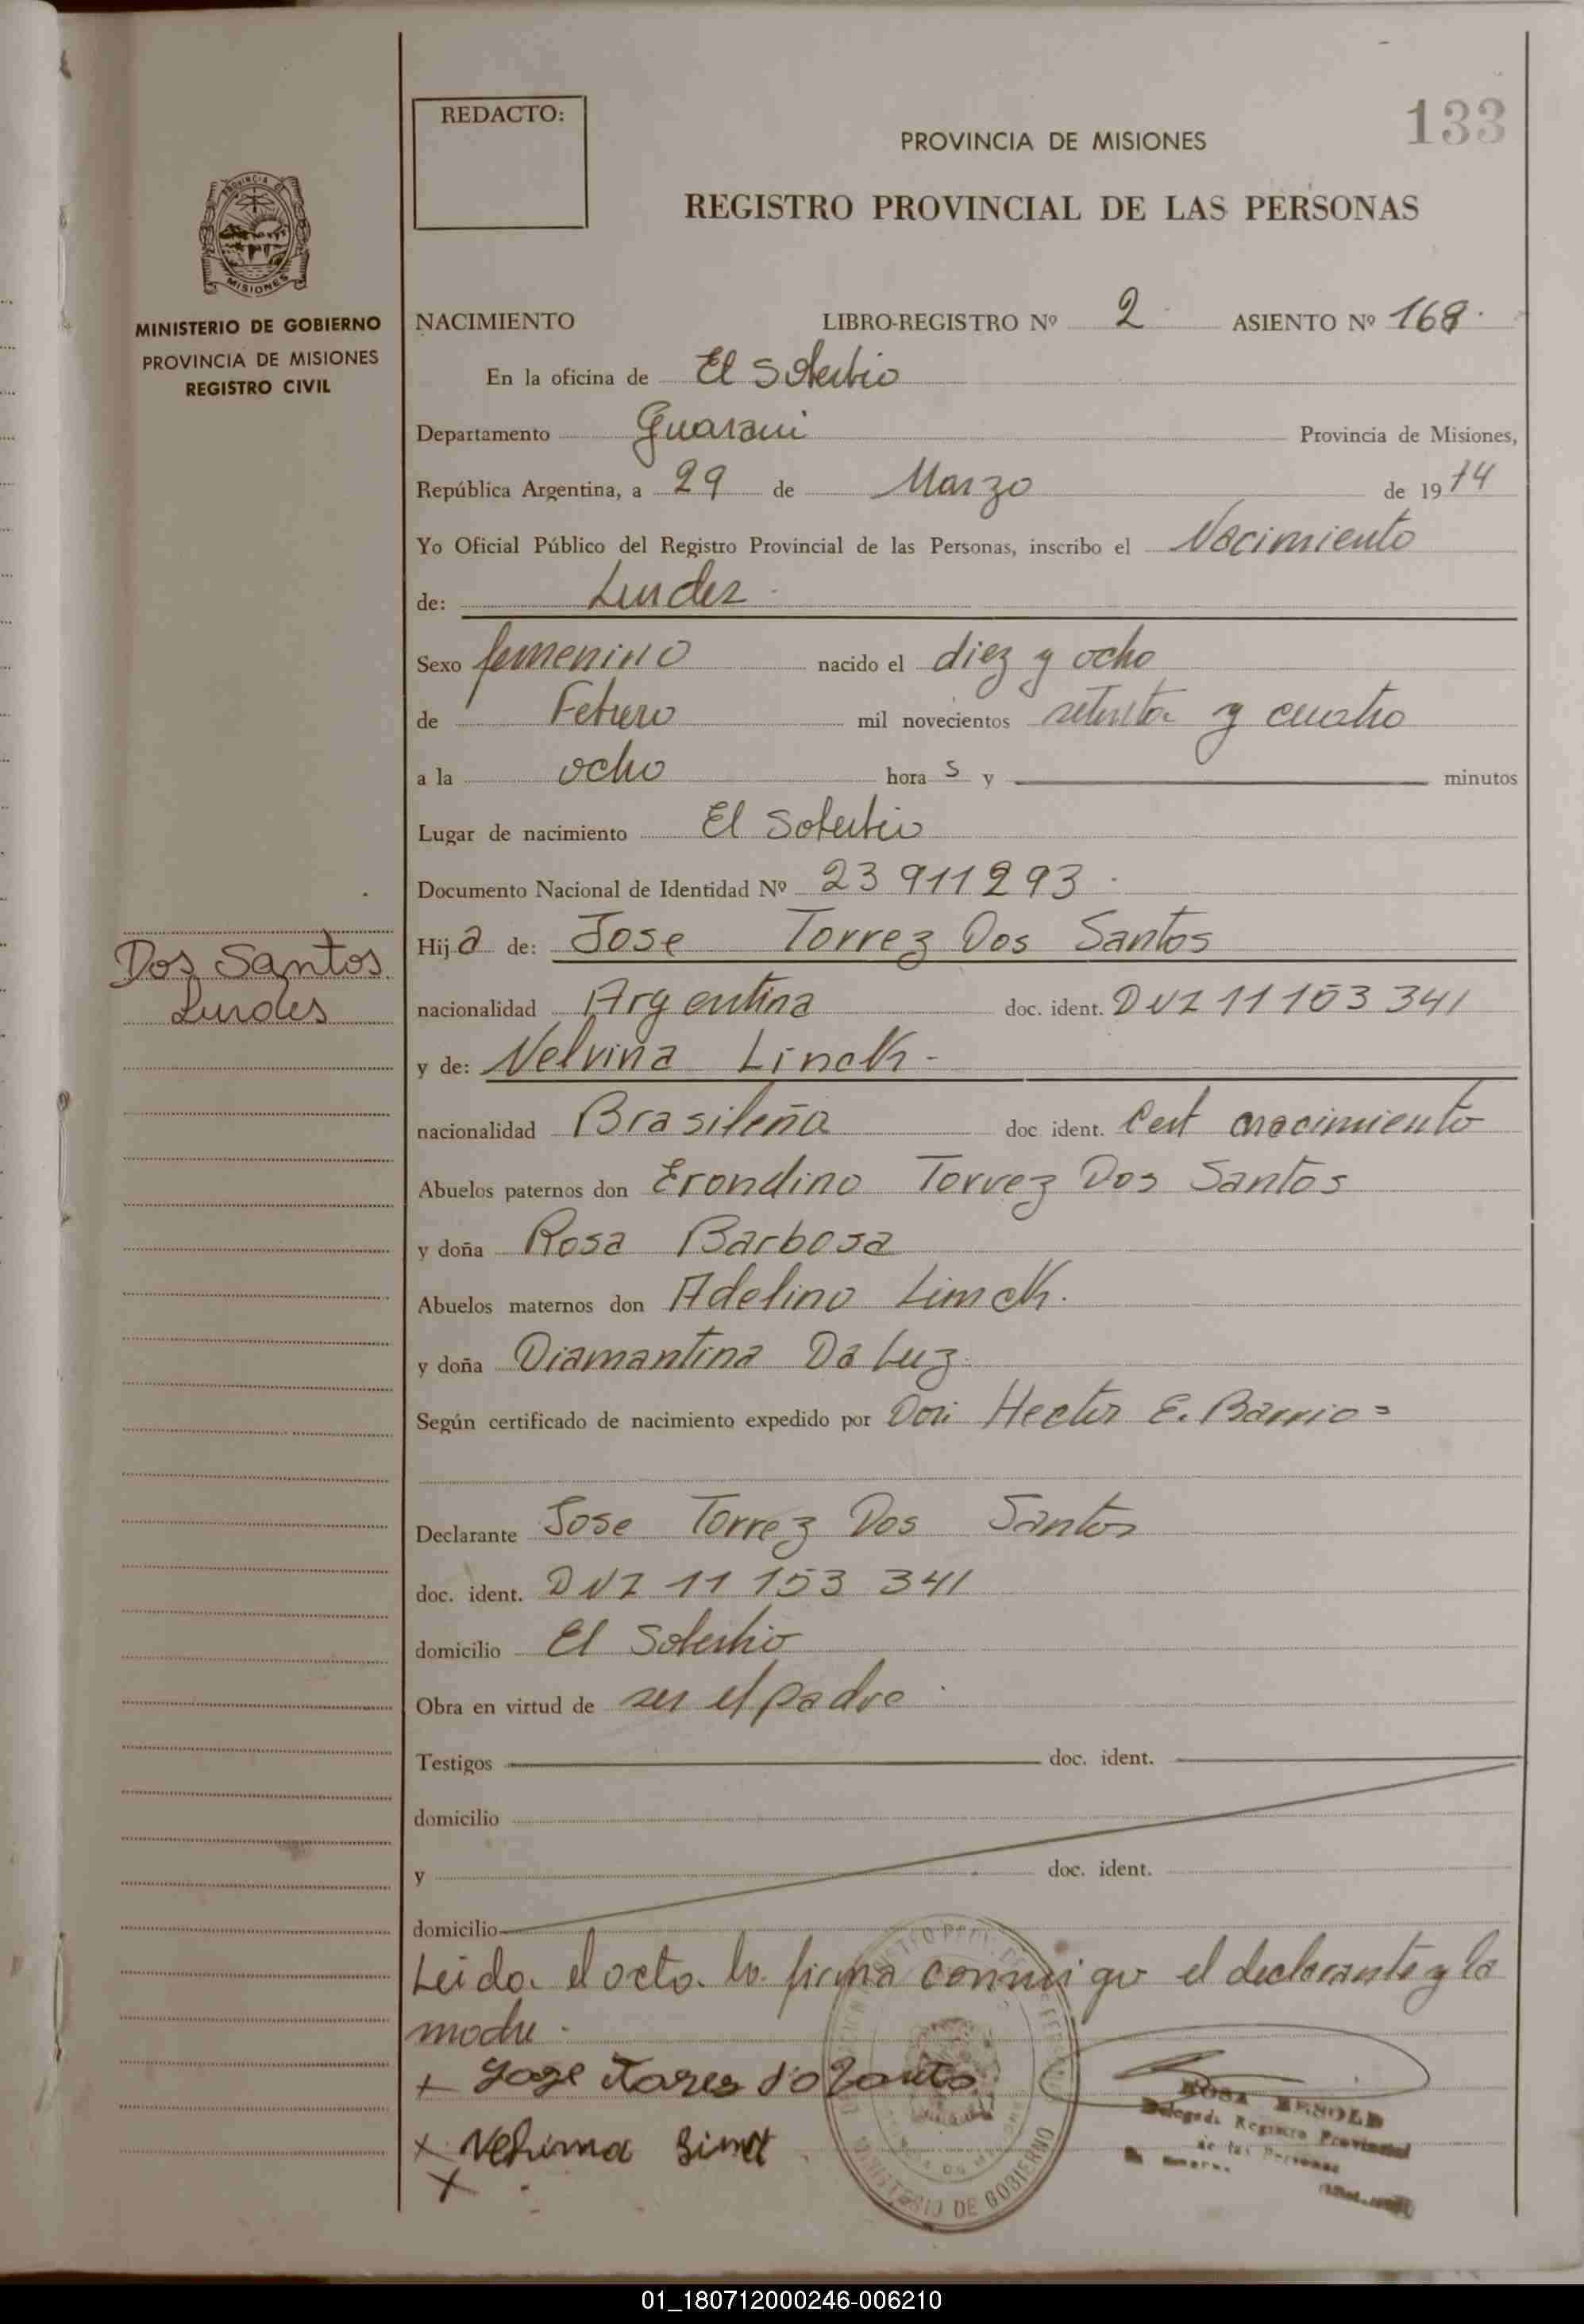 133
REDACTO:
PROVINCIA DE MISIONES
REGISTRO PROVINCIAL DE LAS PERSONAS
PROVINCIA DE
MISIONES
MINISTERIO DE GOBIERNO
PROVINCIA DE MISIONES
REGISTRO CIVIL
NACIMIENTO LIBRO-REGISTRO Nº 2 ASIENTO Nº 168.
En la oficina de El Soberbio
Departamento Guarani Provincia de Misiones,
República Argentina, a 29 de Marzo de 1974
Yo Oficial Público del Registro Provincial de las Personas, inscribo el Nacimiento
de: Lurdes
Sexo femenino nacido el diez y ocho
de Febrero mil novecientos setenta y cuatro
a la ocho hora s y minutos
Lugar de nacimiento El Soberbio
Documento Nacional de Identidad Nº 23 911 293
Dos Santos
Lurdes
Hija de: Jose Torrez Dos Santos
nacionalidad Argentina doc. ident. DNI 11 153 341
y de: Nelvina Linck
nacionalidad Brasileña doc. ident. Cert nacimiento
Abuelos paternos don Erondino Torrez Dos Santos
y doña Rosa Barbosa
Abuelos maternos don Adelino Limck.
y doña Diamantina Da Luz
Según certificado de nacimiento expedido por Don Hector E. Barrios
Declarante Jose Torrez Dos Santos
doc. ident. DNI 11 153 341
domicilio El Soberbio
Obra en virtud de ser el padre
Testigos doc. ident.
domicilio
y doc. ident.
domicilio
Leida el acta la firma conmigo el declarante y la
madre
MINISTERIO DE GOBIERNO
ROSA
Delegada Registro Provincial
de las Personas
01_180712000246-006210